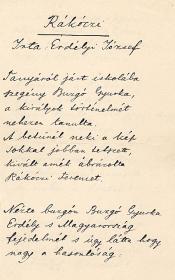 Rákóczi
Irta Erdélyi József
Tanyáról járt iskolába
szegény Buzgó Gyurka,
a királyok történelmét
nehezen tanulta.
A betünél neki a kép
sokkal jobban tetszett,
kivált amék ábrázolta
Rákóczi Ferencet.
Nézte buzgón Buzgó Gyurka
Erdély s Magyarország
fejedelmét s úgy látta hogy
nagy a hasonlóság: